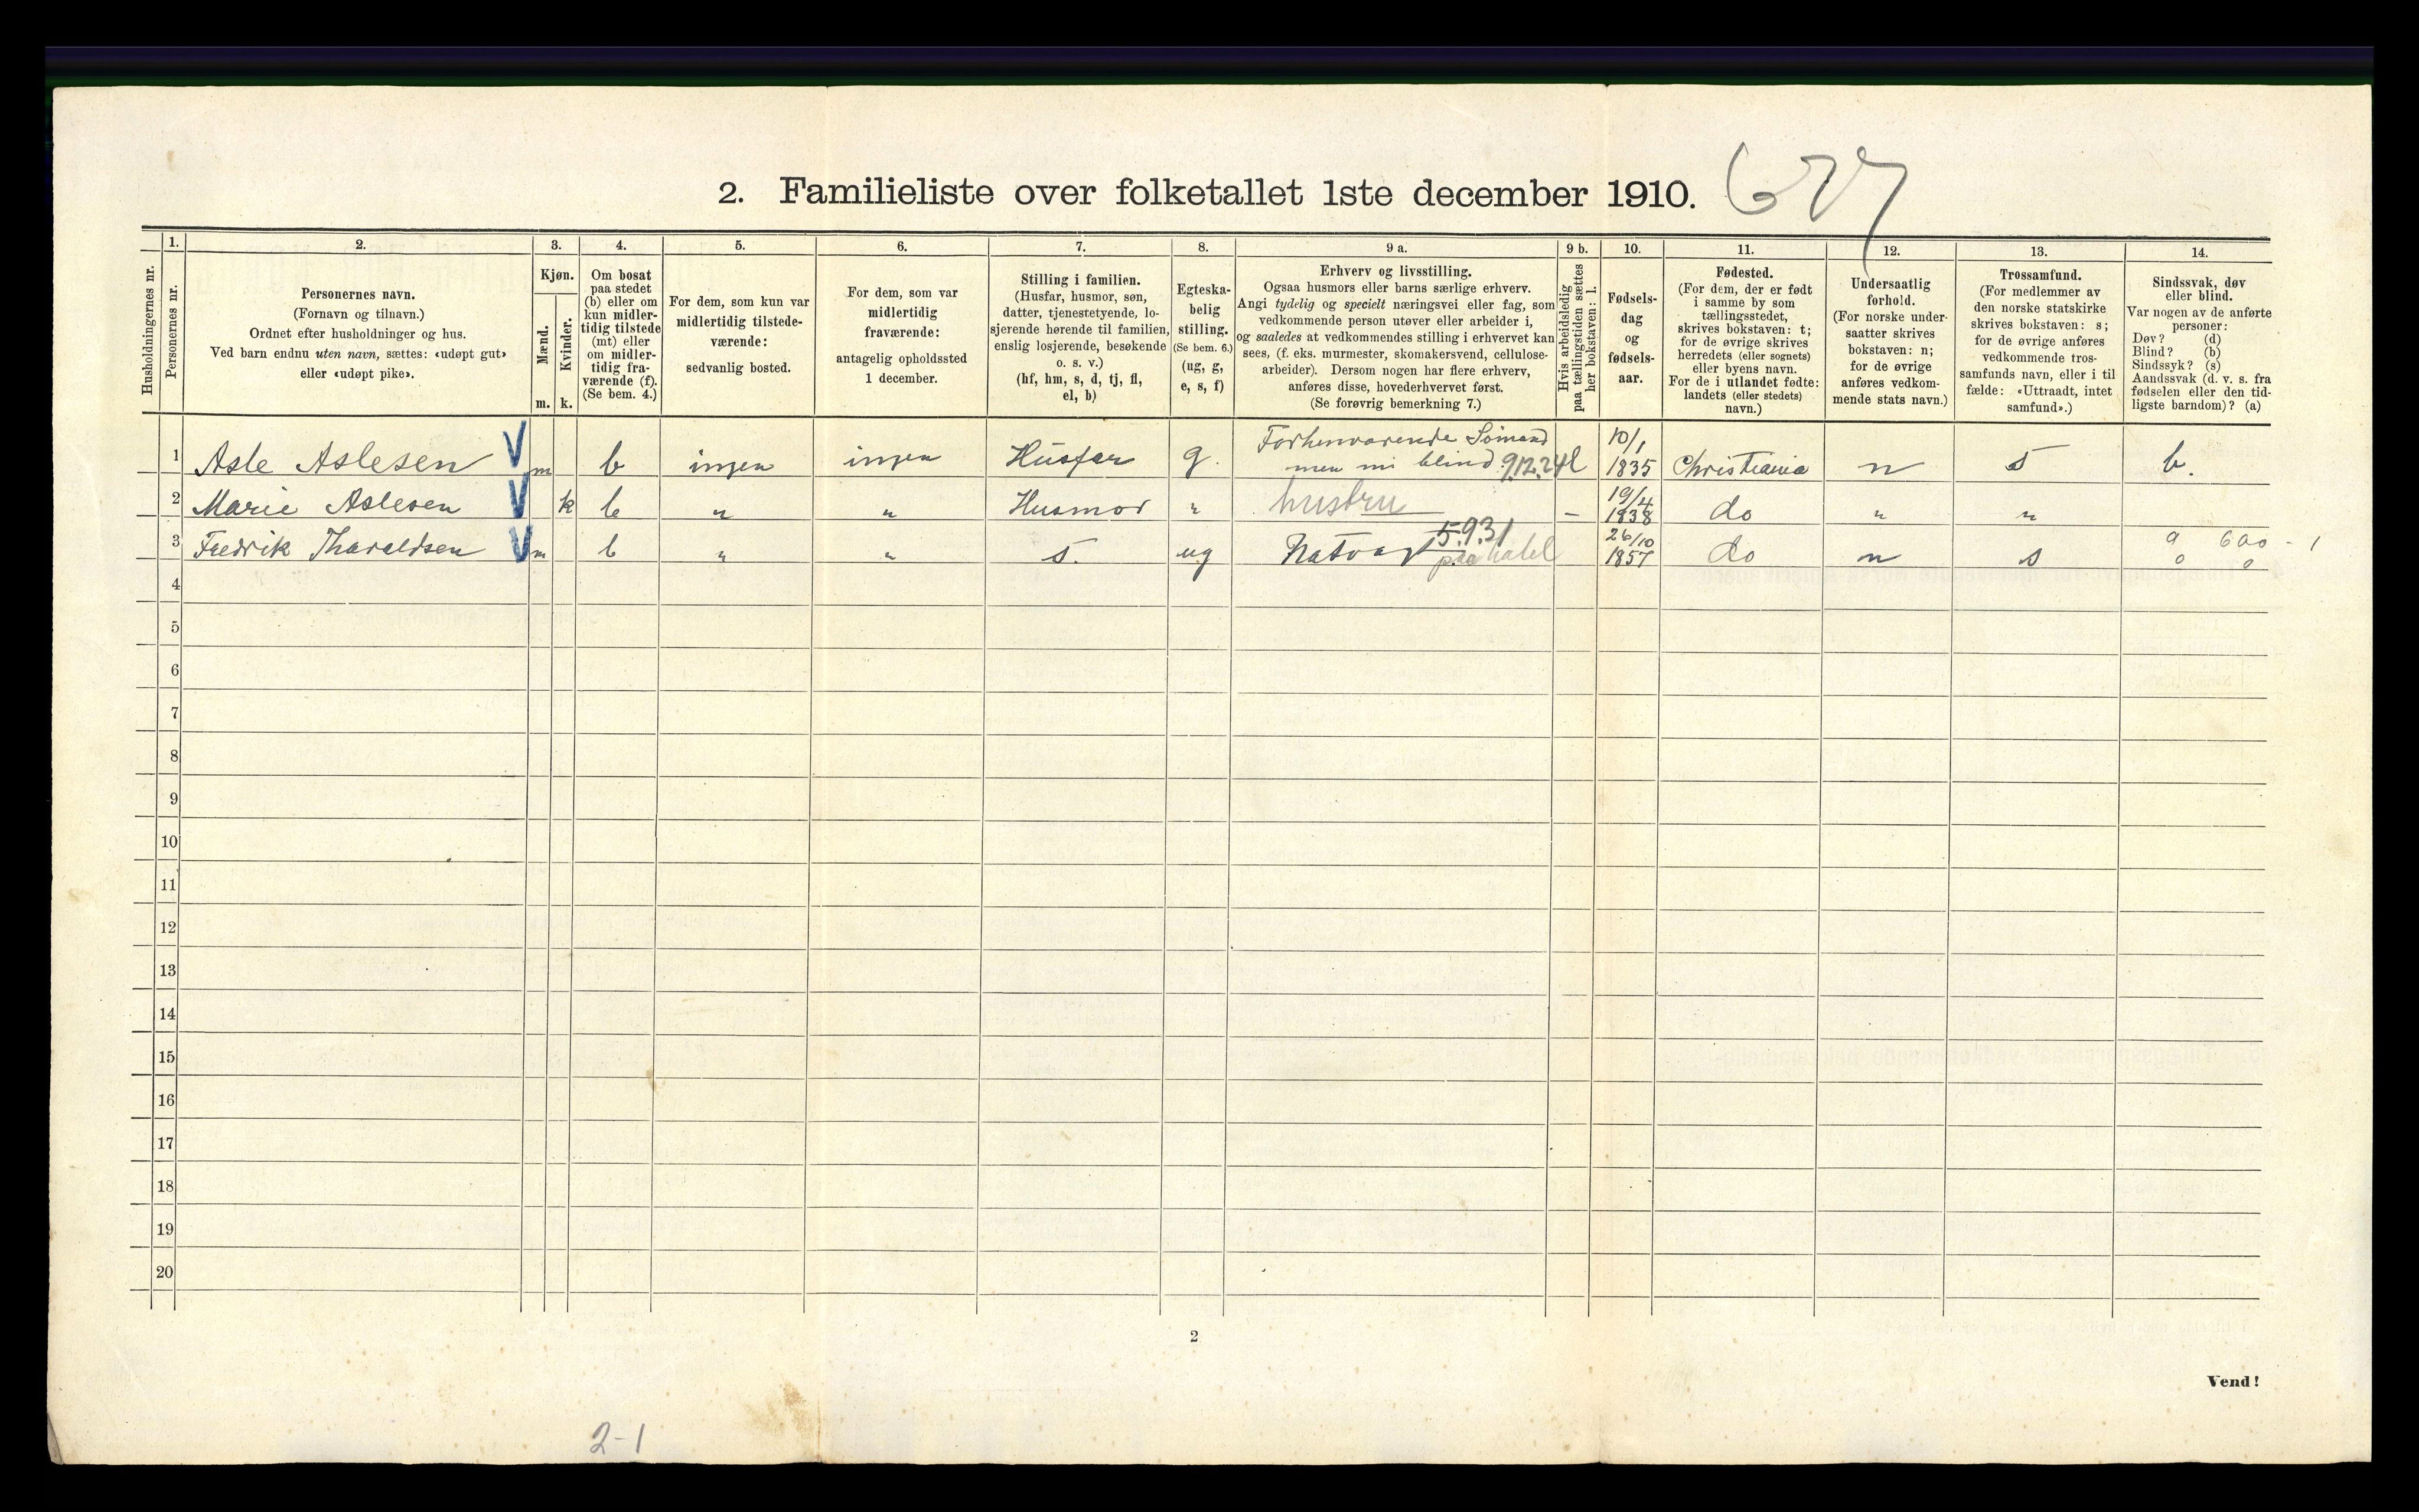 2. Familieliste over folketallet 1ste december 1910. 677
Husholdningernes nr.
1.
Personernes nr.
2.
Personernes navn.
(Fornavn og tilnavn.)
Ordnet efter husholdninger og hus.
Ved barn endnu uten navn, sættes: «udøpt gut»
eller «udøpt pike».
3.
Kjøn.
Mænd.
Kvinder.
m. k.
4.
Om bosat
paa stedet
(b) eller om
kun midler-
tidig tilstede
(mt) eller
om midler-
tidig fra-
værende (f).
(Se bem. 4.)
5.
For dem, som kun var
midlertidig tilstede-
værende:
sedvanlig bosted.
6.
For dem, som var
midlertidig
fraværende:
antagelig opholdssted
1 december.
7.
Stilling i familien.
(Husfar, husmor, søn,
datter, tjenestetyende, lo-
sjerende hørende til familien,
enslig losjerende, besøkende
o. s. v.)
(hf, hm, s, d, tj, fl,
el, b)
8.
Egteska-
belig
stilling.
(Se bem. 6.)
(ug, g,
e, s, f)
9 a.
Erhverv og livsstilling.
Ogsaa husmors eller barns særlige erhverv.
Angi tydelig og specielt næringsvei eller fag, som
vedkommende person utøver eller arbeider i,
og saaledes at vedkommendes stilling i erhvervet kan
sees, (f. eks. murmester, skomakersvend, cellulose-
arbeider). Dersom nogen har flere erhverv,
anføres disse, hovederhvervet først.
(Se forøvrig bemerkning 7.)
9 b.
Hvis arbeidsledig
paa tællingstiden sættes
her bokstaven: l.
10.
Fødsels-
dag
og
fødsels-
aar.
11.
Fødested.
(For dem, der er født
i samme by som
tællingsstedet,
skrives bokstaven: t;
for de øvrige skrives
herredets (eller sognets)
eller byens navn.
For de i utlandet fødte:
landets (eller stedets)
navn.)
12.
Undersaatlig
forhold.
(For norske under-
saatter skrives
bokstaven: n;
for de øvrige
anføres vedkom-
mende stats navn.)
13.
Trossamfund.
(For medlemmer av
den norske statskirke
skrives bokstaven: s;
for de øvrige anføres
vedkommende tros-
samfunds navn, eller i til
fælde: «Uttraadt, intet
samfund».)
14.
Sindssvak, døv
eller blind.
Var nogen av de anførte
personer:
Døv? (d)
Blind? (b)
Sindssyk? (s)
Aandssvak (d. v. s. fra
fødselen eller den tid-
ligste barndom)? (a)
1 Asle Aslesen V m b ingen ingen Husfar g. Forhenvarende Sömand men nu blind 9.12.24 l 10/1 1835 Christiania n s b.
2 Marie Aslesen V k b " " Husmor " hustru – 19/4 1838 do " "
3 Fredrik Tharaldsen V m b " " s. ug Natvagt paa hotel 5.9.31 26/10 1857 do n s 0 600 - 1
0 0
4
5
6
7
8
9
10
11
12
13
14
15
16
17
18
19
20
2
Vend!
2-1